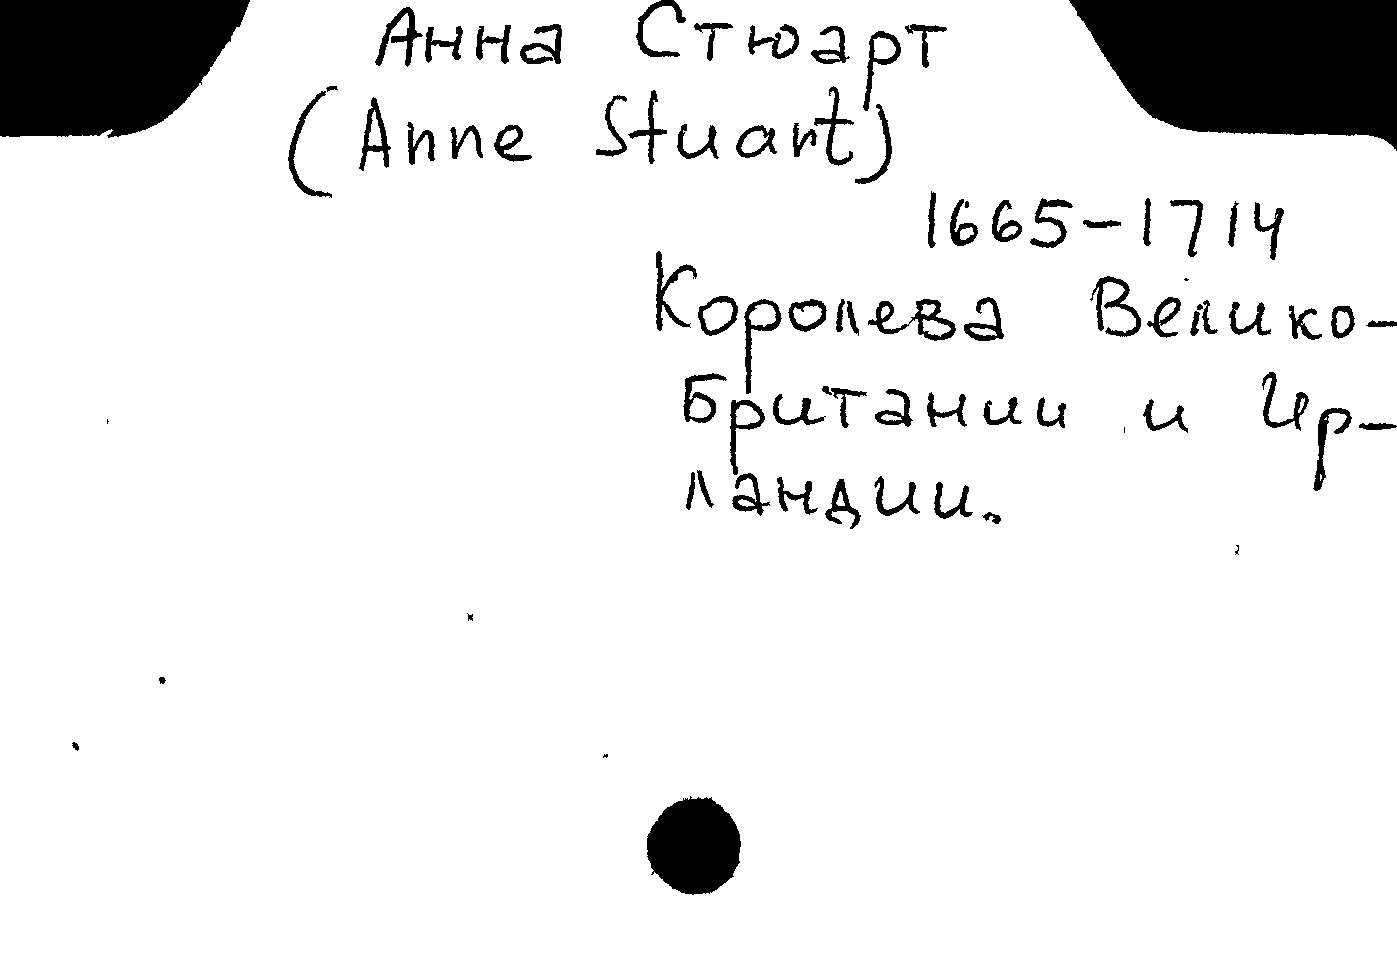 Анна Стюарт
(Anne Stuart)
1665-1714
Королева Велико-
Британии и Ир-
ландии.